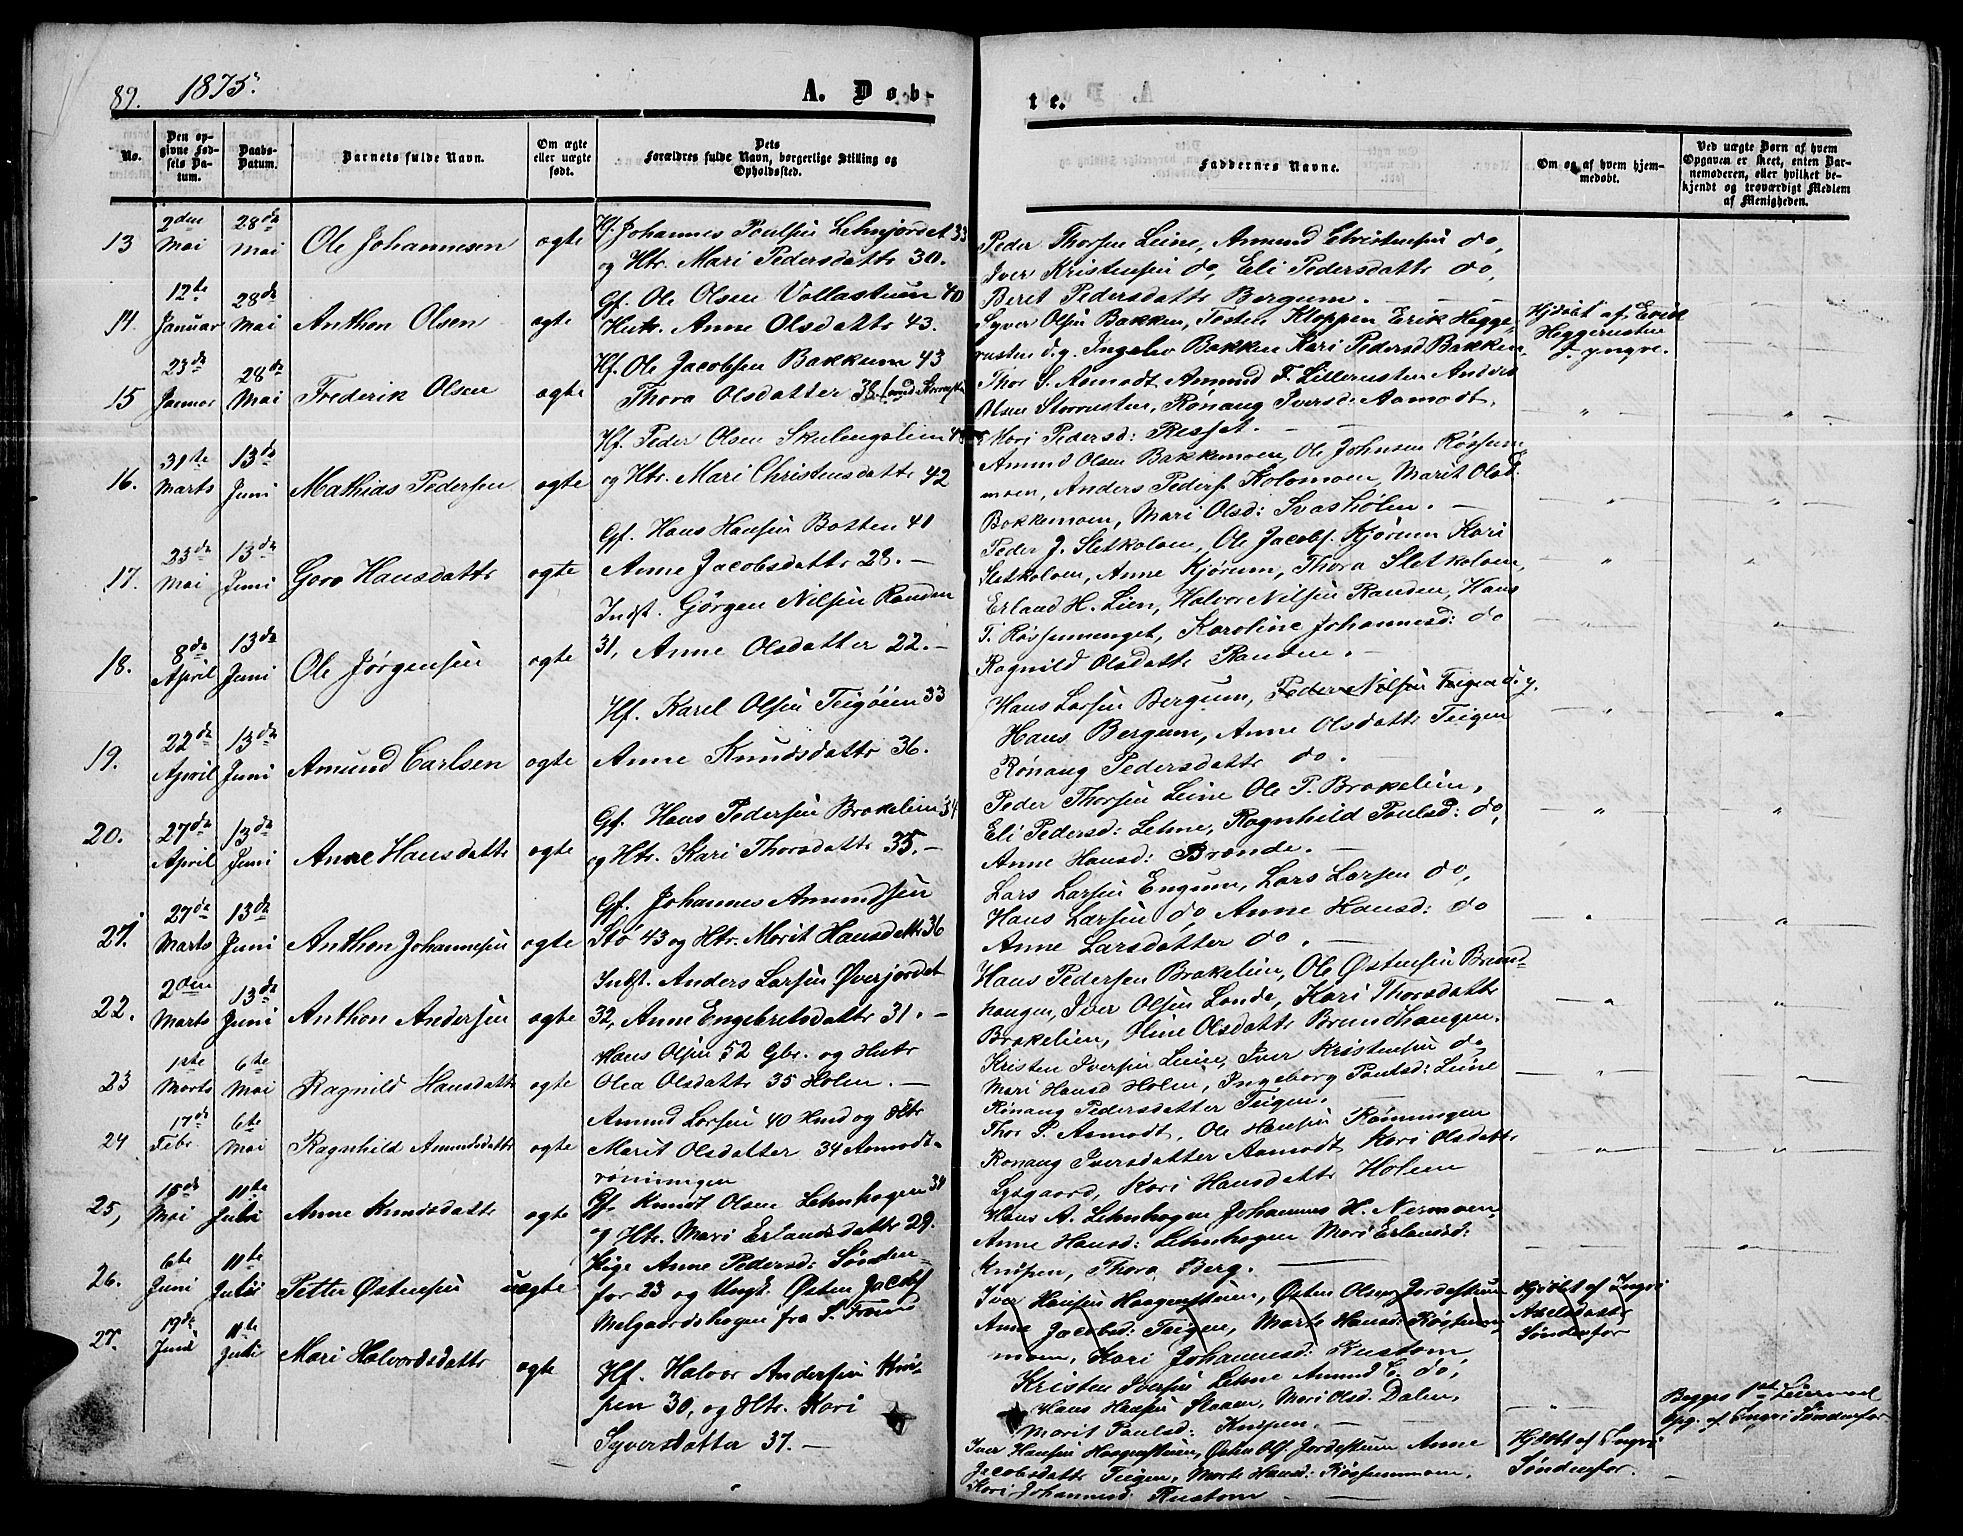 89. 1875.
A. Døb-
te.
No.
Den opgivne Fødsels Datum.
Daabs-Datum.
Barnets fulde Navn.
Om ægte eller uægte født.
Dets Forældres fulde Navn, borgerlige Stilling og Opholdssted.
Faddernes Navne.
Om og af hvem hjemmedøbt.
Ved uægte Børn af hvem Opgaven er skeet, enten Barnemoderen, eller hvilket bekjendt og troværdigt Medlem af Menigheden.
13 2den Mai 28de Mai Ole Johannesen ægte
Hf. Johannes Poulsen Lehnjordet 33
og Htr. Mari Pedersdattr 30.
Peder Thorsen Leine, Amund Christensen do,
Iver Kristensen do, Eli Pedersdattr do,
Beret Pedersdattr Bergum.
14. 12te Januar 28de Mai Anthon Olsen ægte
Gf. Ole Olsen Vollastuen 40
Hustr. Anne Olsdattr 43.
Syver Olsen Bakken, Tosten Kloppen Erik Hegge-
rusten d.y. Ingebor Bakken Kari Pedersd Bakken
Hjdøbt af Erik
Heggerusten
d yngre.
15 23de Januar 28de Mai Frederik Olsen ægte
Hf. Ole Jacobsen Bakkum 43
Thora Olsdatter 38.
Thor S. Aamodt Amund F. Lillerusten Anders
Olsen Storrusten, Rønaug Iversd. Aamodt,
Mari Pedersd: Resset.
16. 31te Marts 13de Juni Mathias Pedersen ægte
Hf. Peder Olsen Skulengslien
og Htr. Mari Christensdattr 42
Amund Olsen Bakkemoen, Ole Johnsen Røssum-
moen, Anders Peders. Kolomoen, Marit Olsd.
Bakkemoen, Mari Olsd: Svashølen.
17. 23de Mai 13de Juni Goro Hansdattr ægte
Gf. Hans Hansen Botten 41
Anne Jacobsdattr 28.
Peder J. Sletkolven, Ole Jacobs. Kjørum Kari
Sletkolven, Anne Kjørum, Thora Sletkolven,
18. 8de April 13de Juni Ole Jørgensen ægte
Indst. Görgen Nilsen Randen
31, Anne Olsdatter 22.
Erland H. Lien, Halvor Nilsen Randen, Hans
T. Røssumenget, Karoline Johannesd: do
Ragnild Olsdattr Randen.
19. 22de April 13de Juni Amund Carlsen ægte
Hf. Karel Olsen Teigøien 33
Anne Knudsdattr 36.
Hans Larsen Bergum, Peder Nilsen Teigen d.y.
Hans Bergum, Anne Olsdattr Teigen
Rønaug Pedersdattr do.
20. 27de April 13de Juni Anne Hansdattr ægte
Gf. Hans Pedersen Brakelien 34
og Htr. Kari Thorsdattr 35.
Peder Thorsen Leine Ole P. Brakelien,
Eli Pedersd: Lehne, Ragnhild Poulsd: do,
Anne Hansd: Brænde.
21. 27de Marts 13de Juni Anthon Johannesen ægte
Gf. Johannes Amundsen
Stø 43 og Htr. Marit Hansdattr 36
Lars Larsen Engum, Lars Larsen do,
Hans Larsen do, Anne Hansd: do
Anne Larsdatter do.
22. 2den Marts 13de Juni Anthon Andersen ægte
Indst. Anders Larsen Øverjordet
32, Anne Engebretsdattr 31.
Hans Pedersen Brakelien, Ole Østensen Brend-
haugen, Iver Olsen Lunde, Kari Thorsdattr
Brakelien, Oline Olsdattr Brendhaugen.
23 1ste Marts 6te Mai Ragnild Hansdattr ægte
Hans Olsen 52 Gbr. og Hustr
Olea Olsdattr 35 Holen.
Kristen Iversen Leine, Iver Kristensen do
Mari Hansd Holen, Ingeborg Poulsd: Leine
Rønaug Pedersdatter Teigen.
24 17de Febr 6te Mai Ragnhild Amundsdattr ægte
Amund Larsen 40 Hmd og Htr
Marit Olsdatter 34 Aamodt-
rønningen
Thor P. Aamodt, Ole Hansen Rønningen
Rønaug Iversdatter Aamodt Kari Olsdattr
Lysgaard, Kari Hansdattr Holen
25, 15de Mai 11te Juli Anne Knudsdattr ægte
Gf. Knudt Olsen Lehnhagen 34
og Htr. Mari Erlandsdattr 29.
Hans A. Lehnhagen Johannes H. Nermoen,
Anne Hansd: Lehnhagen Mari Erlandsd:
Knipen, Thora Berg.
26. 6te Juni 11te Juli Petter Østensen uægte
Pige Anne Pedersd: Sønden-
for 23 og Ungk. Østen Jacobs
Melgaardshagen fra S. Fron
Iver Hansen Haagenstuen, Østen Olsen Jordestuen
Anne Jacobsd: Teigen, Marte Hansd: Røssum-
moen, Kari Johannesd: Rustom
Hjdøbt af Ingri
Axelsdattr
Søndenfor
27. 19de Juni 11te Juli Mari Halvordsdattr ægte
Hf. Halvor Andersen Kni-
pen 30, og Htr. Kari
Syversdatter 37.
Kristen Iversen Lehne Amund C. do,
Hans Hansen Staaen, Mari Olsd. Dalen,
Marit Poulsd: Knipen.
Iver Hansen Haagenstuen, Østen Ols. Jordestuen Anne
Jacobsdattr Teigen, Marte Hansd: Røssummoen,
Kari Johannesd. Rustom
Hjdøbt af Ingri
Søndenfor.
Begges 1ste Leiermaal
Opg. af Ingri Søndenfor